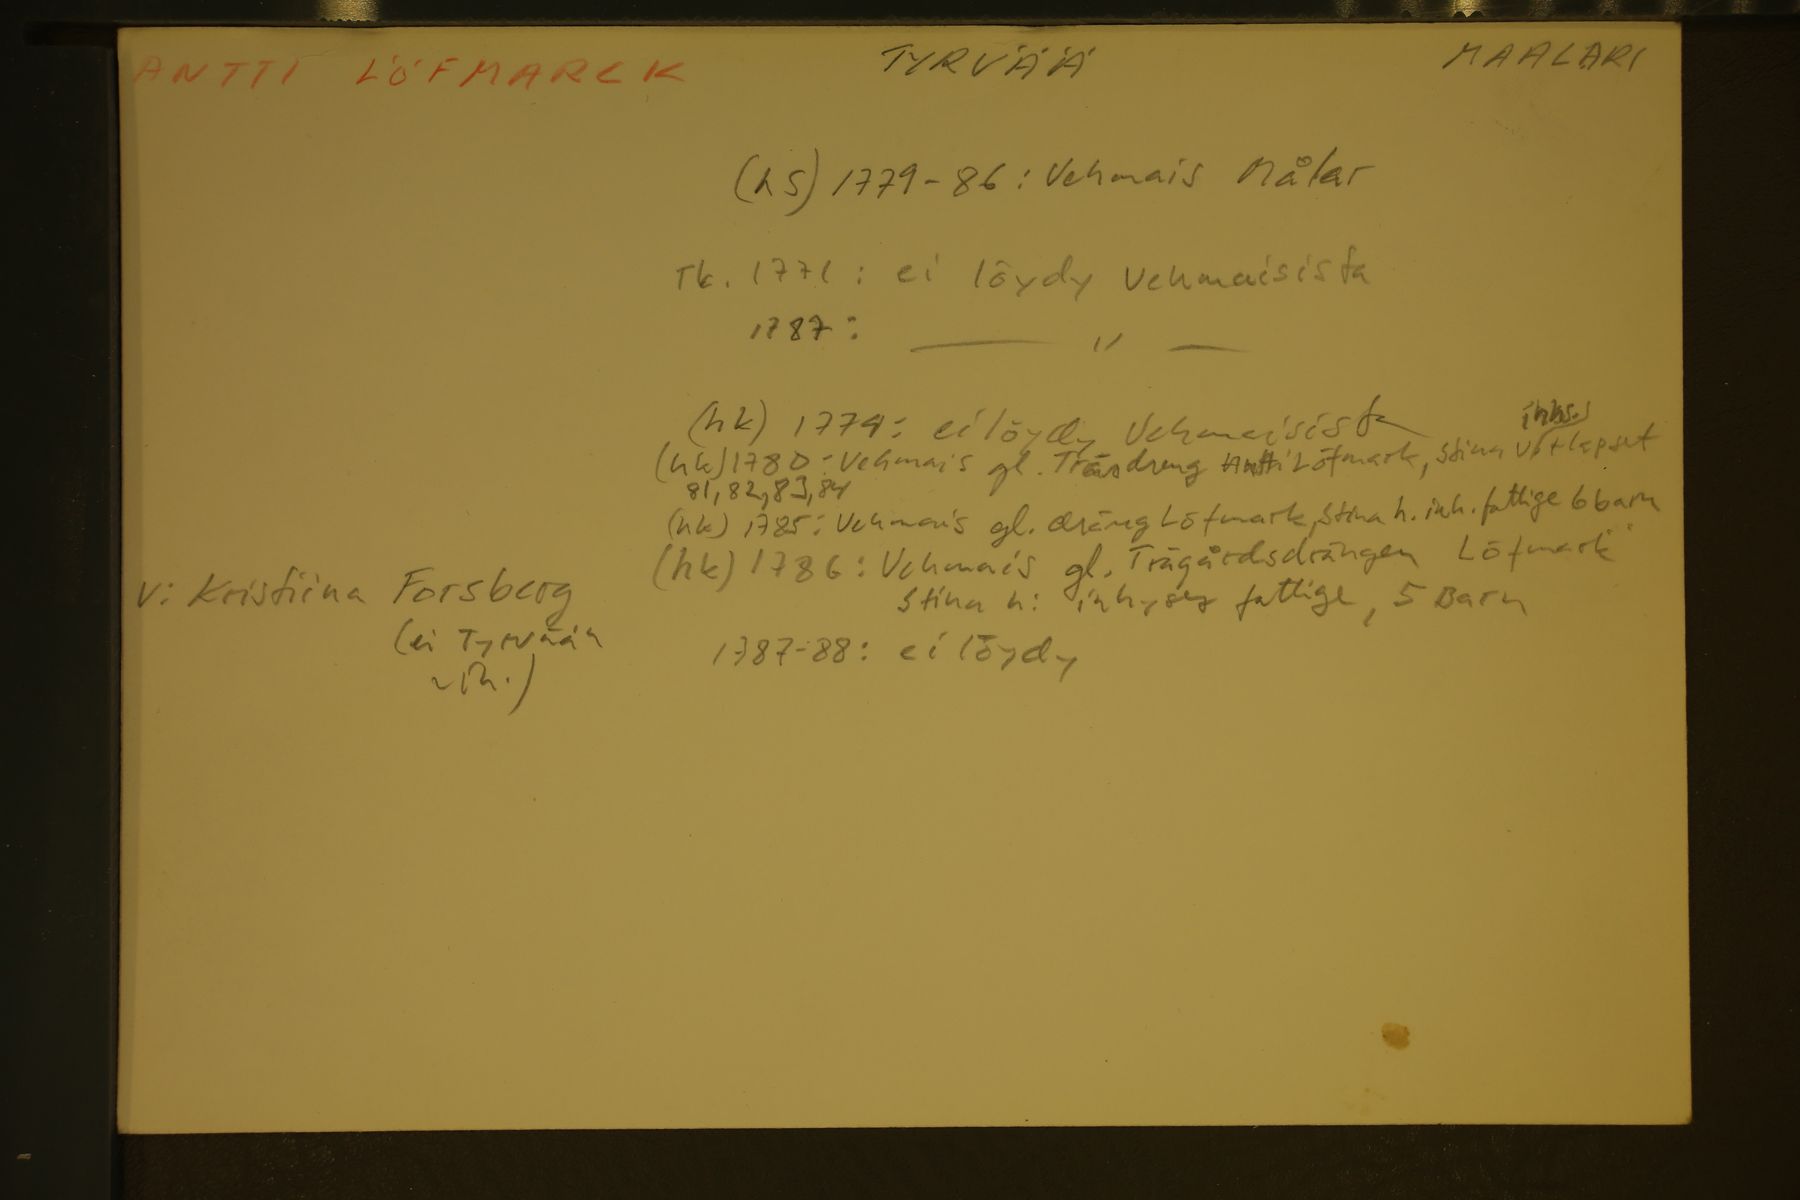 ANTTI LÖFMARCK TYRVÄÄ MAALARI
(hs) 1779-86: Vehmais Målar
Tk. 1771: ei löydy Vehmaisista
1787: — " —
(hk) 1779: ei löydy Vehmaisista
(hk) 1780: Vehmais gl. Antti Löfmark, Stina + lapset
81, 82, 83, 84
(hk) 1785: Vehmais gl. dräng Löfmark, Stina h. inh. fattige 6 barn
(hk) 1786: Vehmais gl. Trägårdsdrängen Löfmark"
Stina h: inhyses fattige, 5 Barn
V: Kristiina Forsberg
(ei Tyrvään
vih.)
1787-88: ei löydy